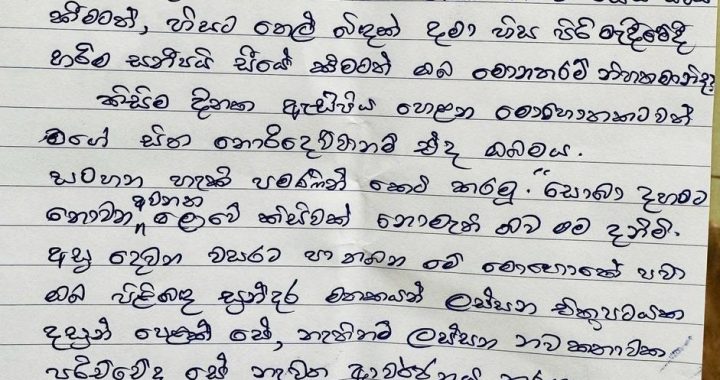 කීමටත්, හිසට තෙල් බිඳක් දමා හිස පිරිමැදීමේදී
හරිම සනීපයි සීයේ කීමටත් ඔබ මොනතරම් නිහතමානීද?
කිසිම දිනක ඇසිපිය හෙළන මොහොතකටවත්
මගේ සිත නොරිදෙව්වානම් ඒද ඔබමය.
සටහන හැකි පමණින් කෙටි කරමු. "සොබා දහමට
නොවන අවනත ලොවේ කිසිවක් නොමැති බව මම දනිමි.
අසූ දෙවන වසරට පා තබන මේ මොහොතේ පවා
ඔබ පිළිබඳ සුන්දර මතකයන් ලස්සන චිත්‍රපටයක
දසුන් පෙළක් සේ, නැතිනම් ලස්සන නව කතාවක
පරිච්ඡේද සේ නැවත ආවර්ජනය